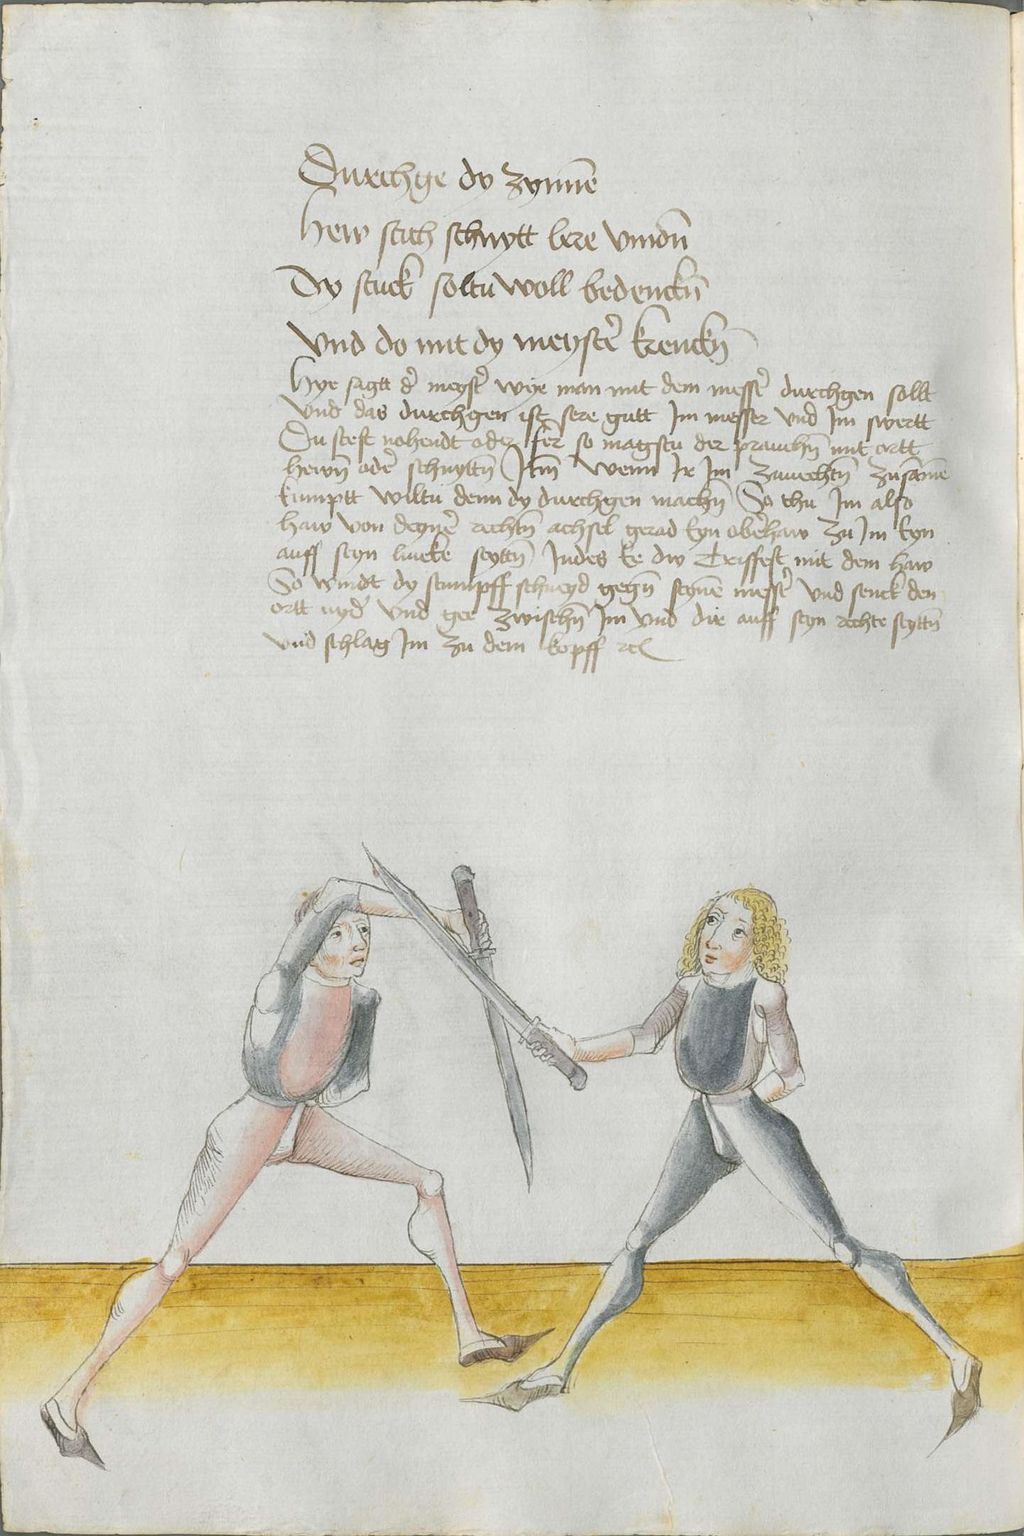 Durchge dy zynne
Hew stich schnytt lere vindn
Dy stuck soltu woll bedenckn
Vnd do mit dy meyster krenckn
Hye sagtt der meyster wye man mit dem messer durchgen sollt
Vnd das durchgen ist sere gutt Im messer vnd Im swertt
Du stest nohendt oder fer so magstu der prauchn mit ortt
hewn oder schnyttn Itm Wenn Ir Im zwuechtn zusame
kumptt wiltu denn dy durchgen machn So thu Im also
haw von deyner rechtn achsel gerad eyn oberhaw zu Im eyn
auff seyn lincke seyttn Indes ee dw Triffest mit dem haw
So windt dy stumpff schneyd gegn seyne messer vnd senck den
ortt nyder vnd gee zwischn Im vnd dir auff seyn rechte seyttn
vnd schlag Im zu dem kopff rc